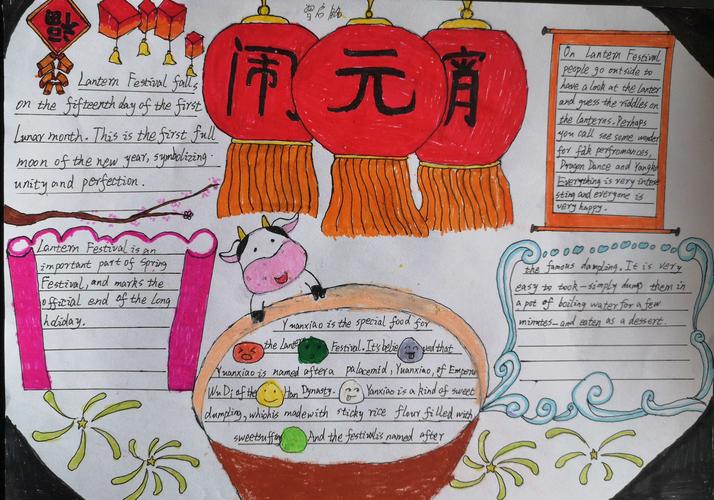 福
闹元宵
Lantern Festival falls
on the fifteenth day of the first
Lunar month. This is the first full
moon of the new year, symbolizing
unity and perfection.
On Lantern Festival
people go outside to
have a look at the lanter
and guess the riddles on
the lanterns. Perhaps
you call see some wonder
for folk perfromances,
Dragon Dance and Yangko
Everything is very intere
sting and everyone is
very happy.
Lantern Festival is an
important part of Spring
Festival, and marks the
official end of the long
holiday.
Yuanxiao is the special food for
the Lante Festival. It's belie ved that
Yuanxiao is named after a palacemid, Yuanxiao, of Emperor
Wu Di; of the Han Dynasty. Yanxiao is a kind of sweet
dumpling, which is made with sticky rice flour filled with
sweetsuffing And the festival is named after
the famous dampling. It is very
easy to took - simply dump them in
a pot of boiling water for a few
minmtes - and eaten as a dessert.